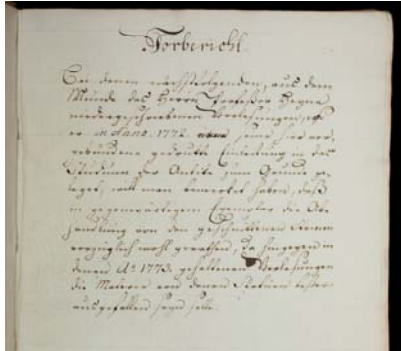 Vorbericht.
Bei denen nächstfolgenden, aus dem
Munde des Herrn Professor Heyne
niedergeschriebenen Vorlesungen, wo
er in Anno 1772. seine hier vor,
gebundene gedruckte Einleitung in das
Studium der Antike zum Grunde ge,
leget, will man bemerket haben, daß
in gegenwärtigem Exemplar die Ab,
handlung von den geschnittenen Steinen
vorzüglich wohl gerathen, da hingegen in
denen Aº 1773. gehaltenen Vorlesungen
die Materie von denen Statuen besser
ausgefallen seyn solle.